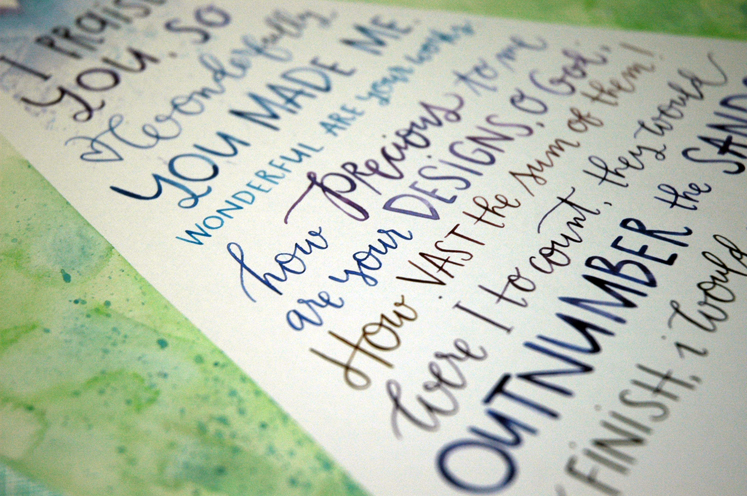 I PRAISE
YOU. SO
Wonderfully
YOU MADE ME.
WONDERFUL ARE your works
how precious to me
are your DESIGNS, O God.
How VAST the sum of them!
Were I to count, they would
OUTNUMBER the SAND
FINISH, i would